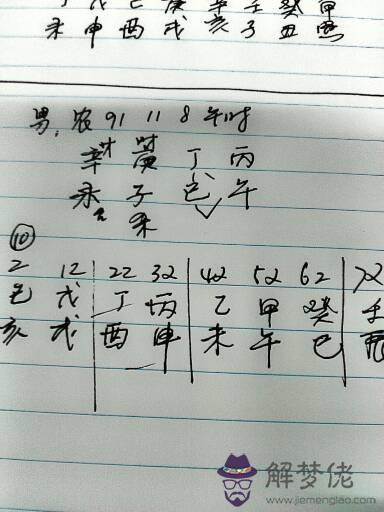 戊 己 庚 辛 壬 癸 甲
未 申 酉 戌 亥 子 丑 寅
男, 农 91 11 8 午时
辛才 庚 丁 丙
未 子 巳 午
杀
⑩
2 12 22 32 42 52 62 72
己 戊 丁 丙 乙 甲 癸 壬
亥 戌 酉 申 未 午 巳
解梦佬
www.jiemenglao.com